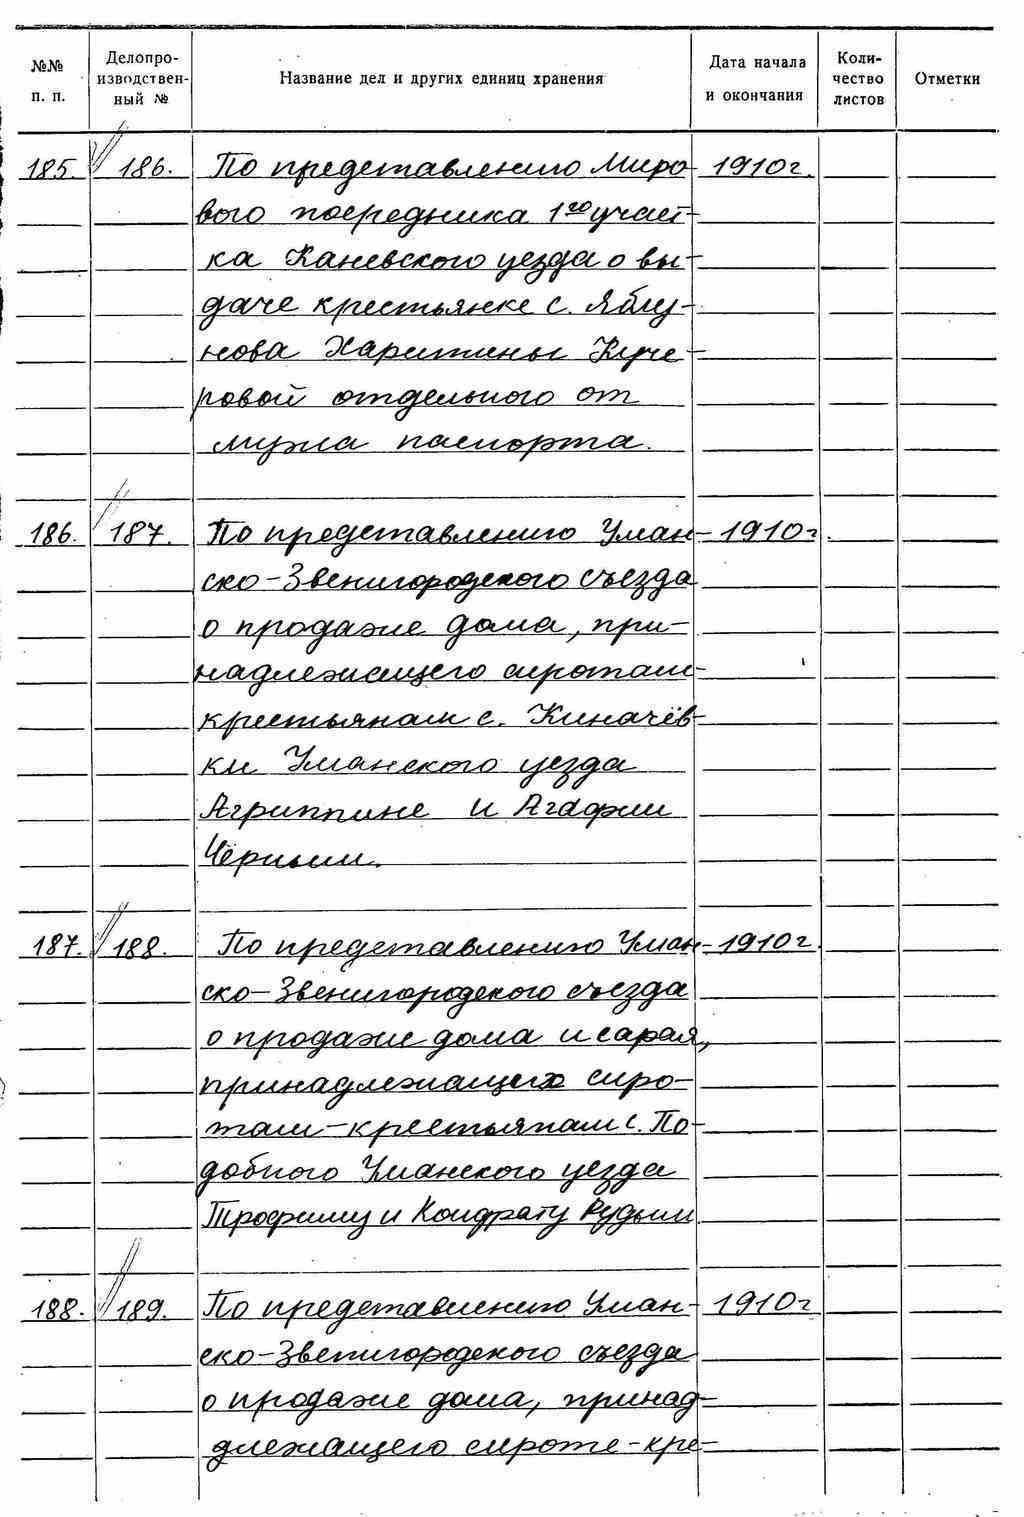 №№ п. п. Делопроизводственный № Название дел и других единиц хранения Дата начала и окончания Количество листов Отметки
185. 186. По представлению Миро- 1910 г.
вого посредника 1го участ-
ка Каневского уезда о вы-
даче крестьянке с. Яблу-
нова Харитины Куче-
ровой отдельного от
мужа паспорта.
186. 187. По представлению Уман- 1910 г.
ско-Звенигородского съезда
о продаже дома, при-
надлежащего сиротам-
крестьянам с. Киначёв-
ки Уманского уезда
Агриппине и Агафии
Чёрным.
187. 188. По представлению Уман- 1910 г.
ско-Звенигородского съезда
о продаже дома и сарая,
принадлежащего сиро-
там-крестьянам с. По-
добного Уманского уезда
Трофиму и Кондрату Рудым
188. 189. По представлению Уман- 1910 г
ско-Звенигородского съезда
о продаже дома, принад-
длежащего сироте-кре-